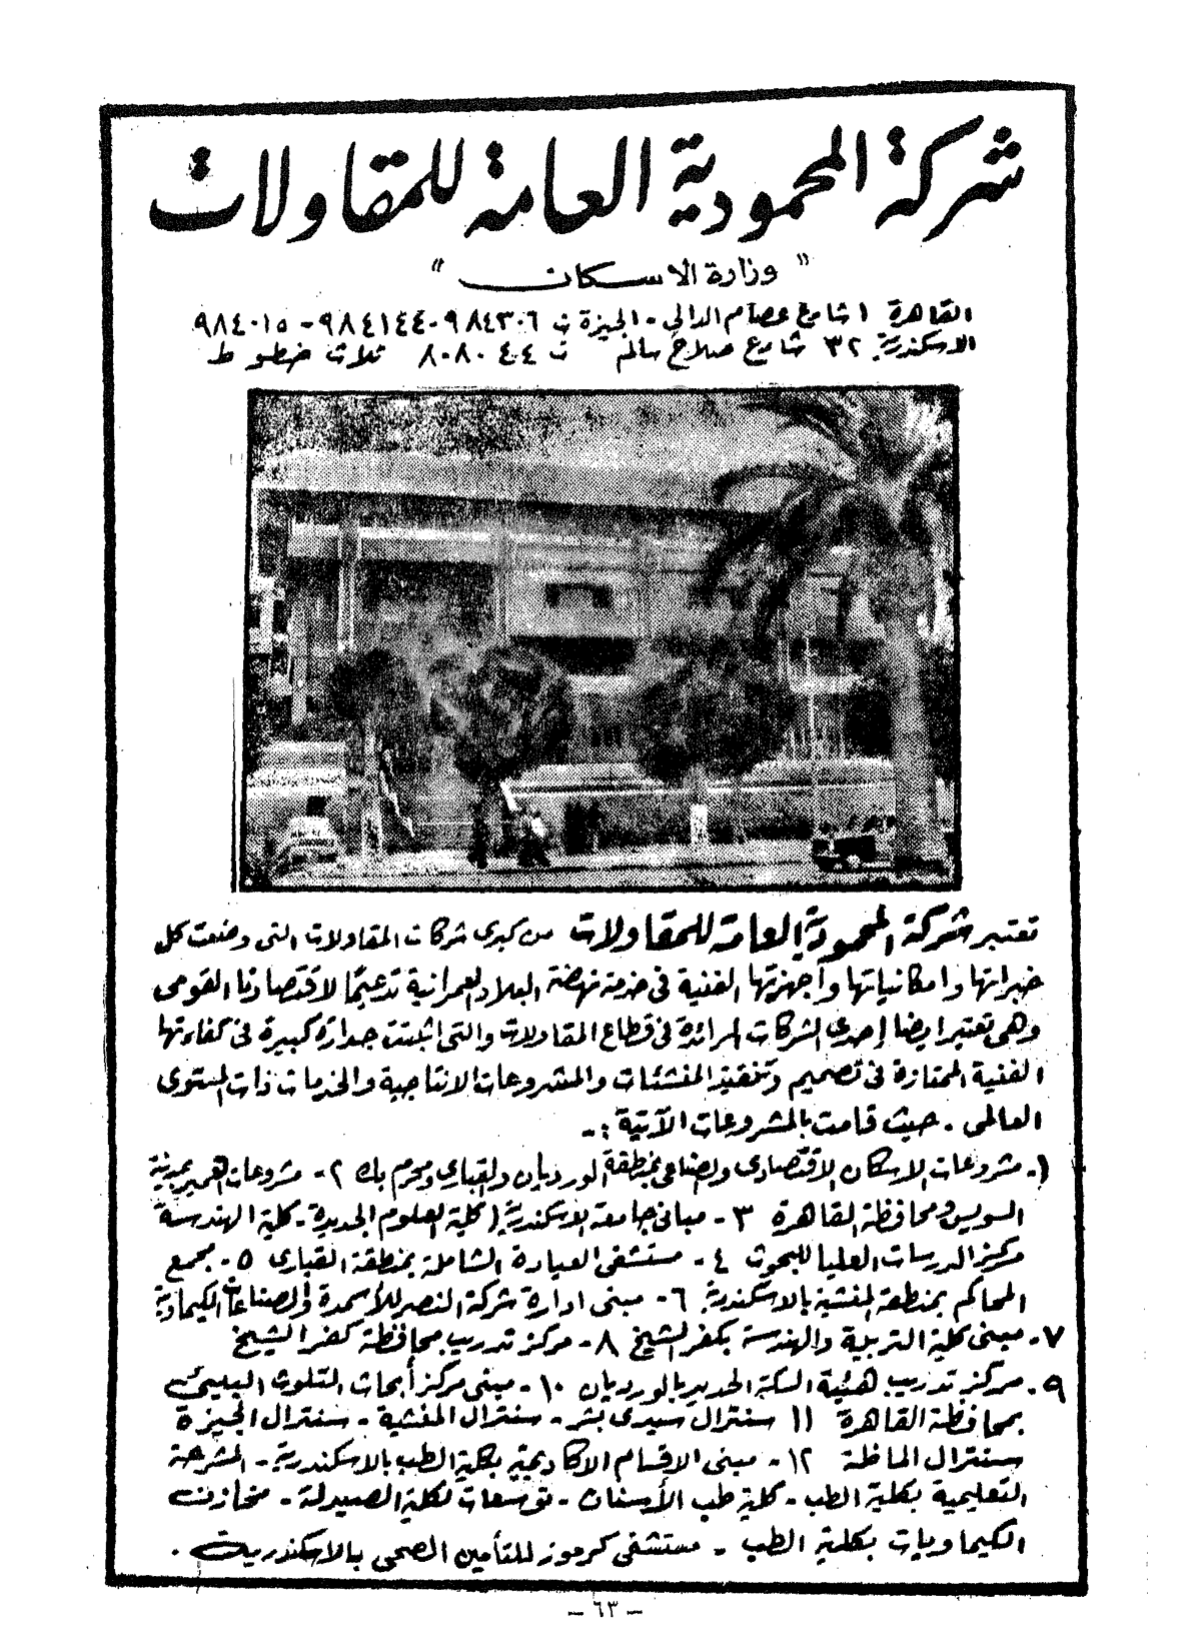 شركة المحمودية العامة للمقاولات
" وزارة الاسكان "
القاهرة ١ شارع عصام الدالى - الجيزة ت ٩٨٤٣٠٦-٩٨٤١٤٤-٩٨٤٠١٥
الاسكندرية ٣٢ شارع صلاح سالم ت ٨٠٨٠٤٠٤ ثلاث خطوط
تعتبر شركة المحمودية العامة للمقاولات من كبرى شركات المقاولات التى وضعت كل
خبراتها وامكانياتها وأجهزتها الفنية فى خدمة نهضة البلاد العمرانية تدعيمًا لاقتصادنا القومى
وهى تعتبر ايضا إحدى الشركات الرائدة فى قطاع المقاولات والتى اثبتت جدارة كبيرة فى كفاءتها
الفنية الممتازة فى تصميم وتنفيذ المنشئات والمشروعات الانتاجية والخدمات ذات المستوى
العالمى . حيث قامت بالمشروعات الآتية :-
١- مشروعات الاسكان الاقتصادى والصناعى بمنطقة الورديان والقبارى ومحرم بك ٢- مشروعات التعمير بمدينة
السويس ومحافظة القاهرة ٣- مبانى جامعة الاسكندرية ( كلية العلوم الجديدة - كلية الهندسة
مركز الدرسات العليا للبحوث ٤- مستشفى العيادة الشاملة بمنطقة القبارى ٥- مجمع
المحاكم بمنطقة المنشية بالاسكندرية ٦- مبنى ادارة شركة النصر للأسمدة والصناعات الكيماوية
٧- مبنى كلية التربية والهندسة بكفر الشيخ ٨- مركز تدريب محافظة كفر الشيخ
٩- مركز تدريب هيئة السكة الحديد بالورديان ١٠- مبنى مركز أبحاث التلوث البيئى
بمحافظة القاهرة ١١ سنترال سيدى بشر - سنترال المنشية - سنترال الجيزة
سنترال الماظة ١٢- مبنى الاقسام الاكاديمية بكلية الطب بالاسكندرية - المشرحة
التعليمية بكلية الطب - كلية طب الأسنان - توسعات لكلية الصيدلة - مخازن
الكيماويات بكلية الطب - مستشفى كرموز للتأمين الصحى بالاسكندرية .
- ٦٣ -